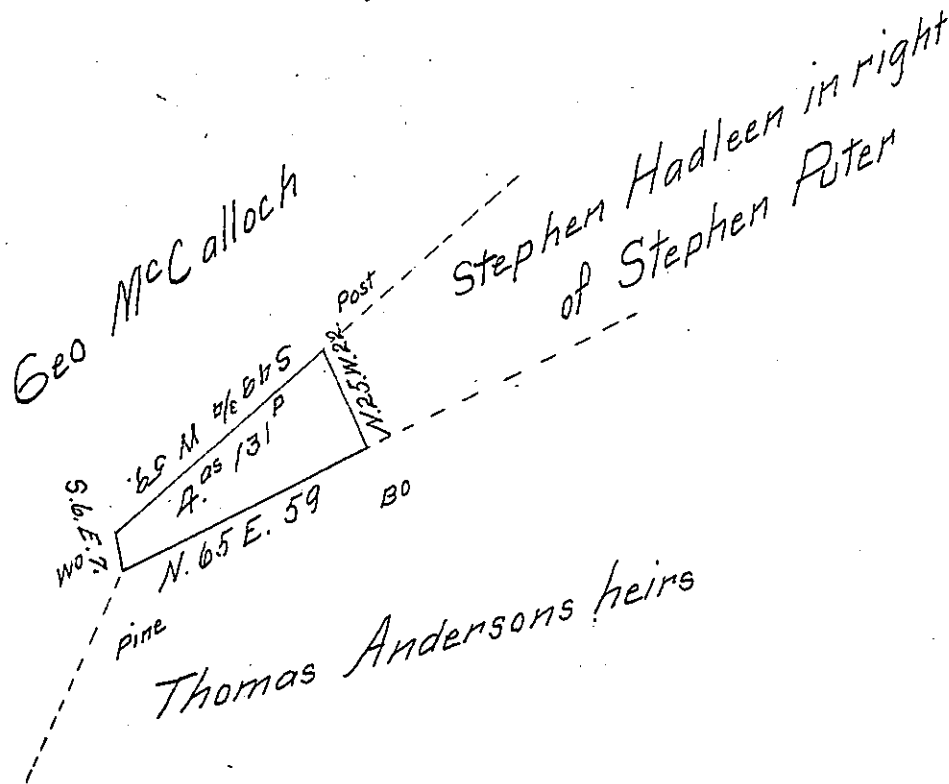 Geo McCalloch
Stephen Hadleen in right
of Stephen Puter
Post
S 49 3/4 W 59.
N.25.W.22.
A.as 131 P
S.6.E.7.
WO
N. 65 E. 59
BO
Pine
Thomas Andersons heirs